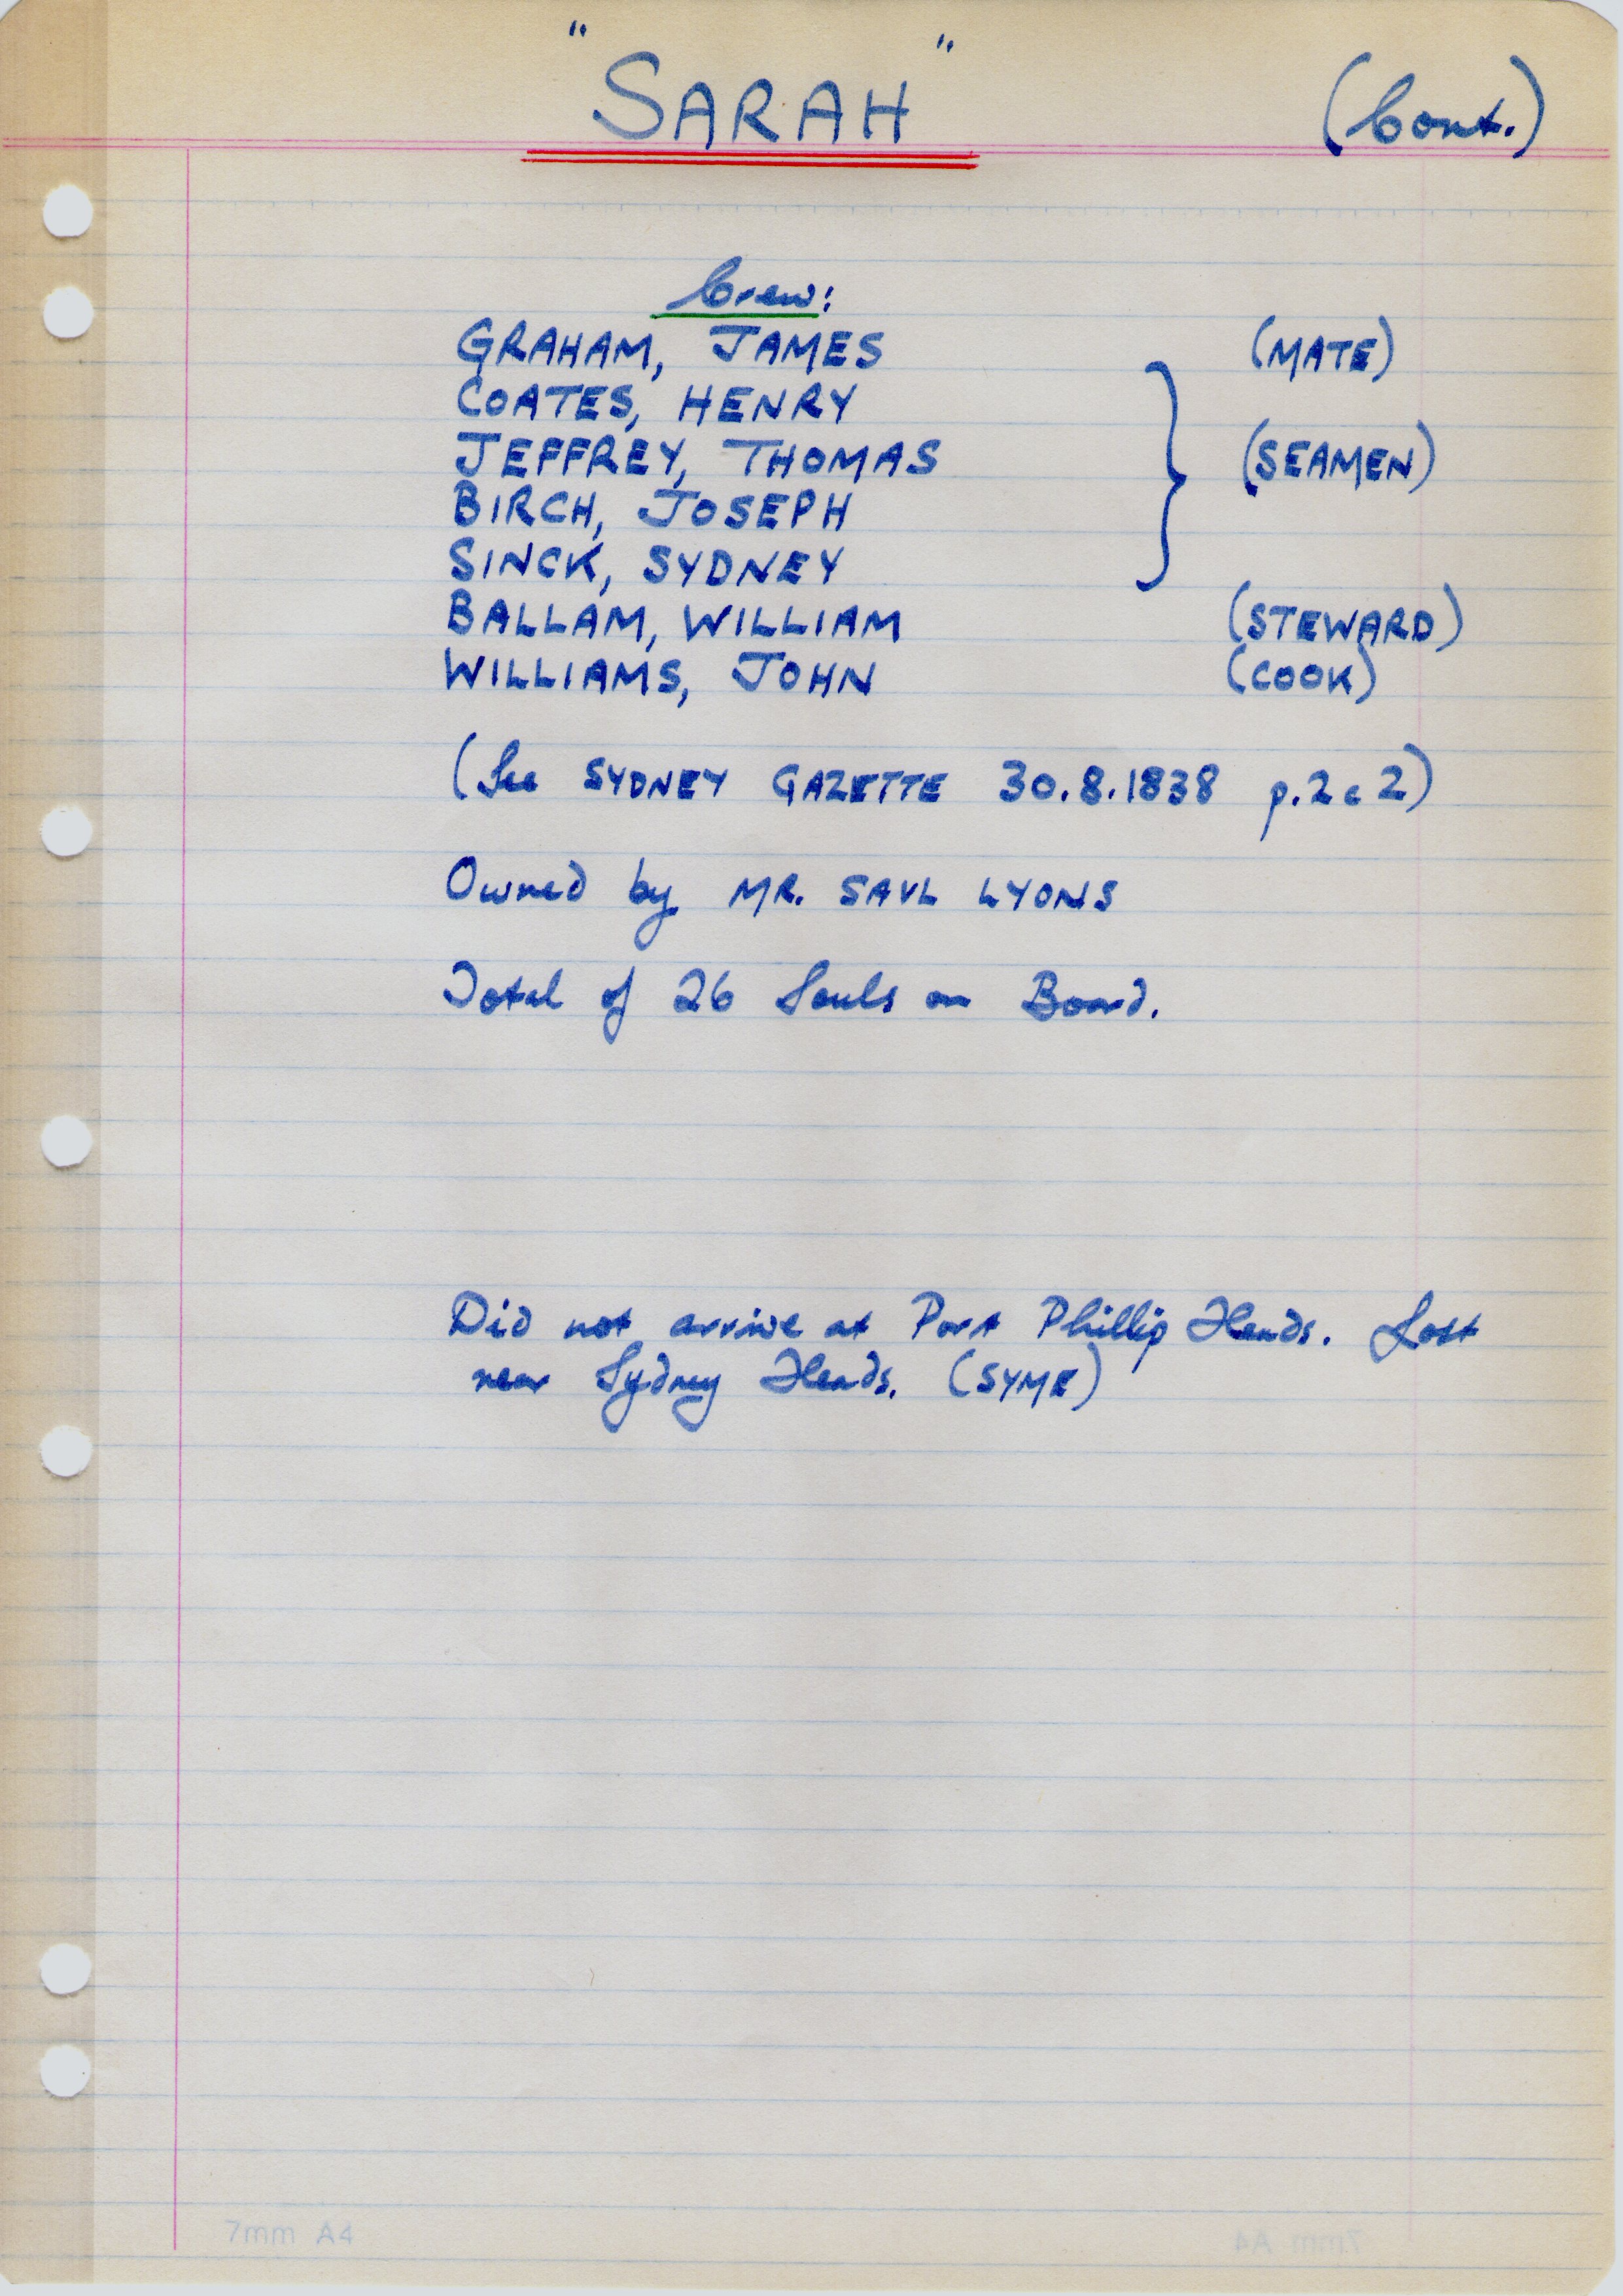 "SARAH" (Cont.)
Crew:
GRAHAM, JAMES (MATE)
COATES, HENRY
JEFFREY, THOMAS } (SEAMEN)
BIRCH, JOSEPH
SINCK, SYDNEY
BALLAM, WILLIAM (STEWARD)
WILLIAMS, JOHN (COOK)
(See SYDNEY GAZETTE 30.8.1838 p.2 c 2)
Owned by MR. SAUL LYONS
Total of 26 Souls on Board.
Did not arrive at Port Phillip Heads. Lost
near Sydney Heads. (SYME)
7mm A4